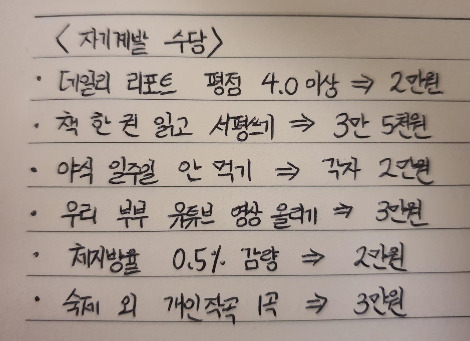 < 자기계발 수당 >
· 데일리 리포트 평점 4.0 이상 ⇒ 2만원
· 책 한 권 읽고 서평쓰기 ⇒ 3만 5천원
· 야식 일주일 안 먹기 ⇒ 각자 2만원
· 우리 부부 유튜브 영상 올리기 ⇒ 3만원
· 체지방율 0.5% 감량 ⇒ 2만원
· 숙제 외 개인작곡 1곡 ⇒ 3만원